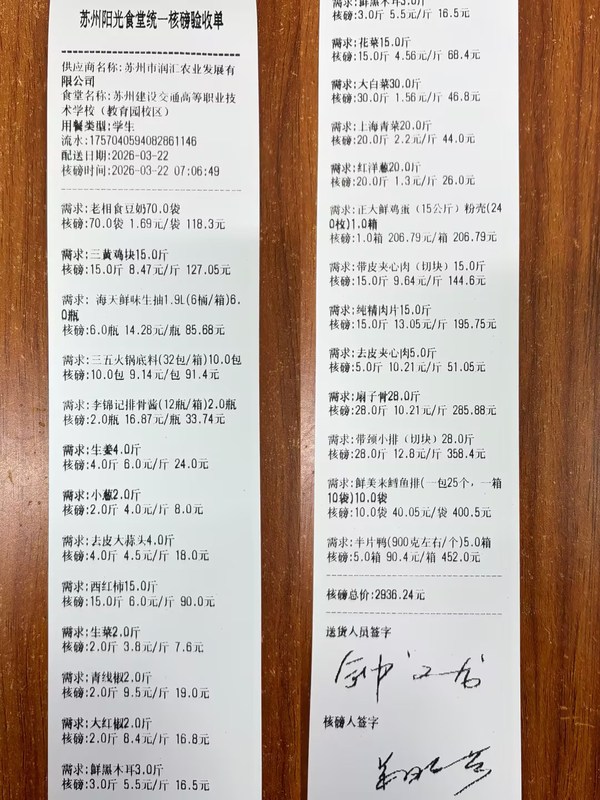 苏州阳光食堂统一核磅验收单
供应商名称:苏州市润汇农业发展有
限公司
食堂名称:苏州建设交通高等职业技
术学校（教育园校区）
用餐类型:学生
流水:1757040594082861146
配送日期:2026-03-22
核磅时间:2026-03-22 07:06:49
需求:老相食豆奶70.0袋
核磅:70.0袋 1.69元/袋 118.3元
需求:三黄鸡块15.0斤
核磅:15.0斤 8.47元/斤 127.05元
需求: 海天鲜味生抽1.9L(6桶/箱)6.
0瓶
核磅:6.0瓶 14.28元/瓶 85.68元
需求:三五火锅底料(32包/箱)10.0包
核磅:10.0包 9.14元/包 91.4元
需求:李锦记排骨酱(12瓶/箱)2.0瓶
核磅:2.0瓶 16.87元/瓶 33.74元
需求:生姜4.0斤
核磅:4.0斤 6.0元/斤 24.0元
需求:小葱2.0斤
核磅:2.0斤 4.0元/斤 8.0元
需求:去皮大蒜头4.0斤
核磅:4.0斤 4.5元/斤 18.0元
需求:西红柿15.0斤
核磅:15.0斤 6.0元/斤 90.0元
需求:生菜2.0斤
核磅:2.0斤 3.8元/斤 7.6元
需求:青线椒2.0斤
核磅:2.0斤 9.5元/斤 19.0元
需求:大红椒2.0斤
核磅:2.0斤 8.4元/斤 16.8元
需求:鲜黑木耳3.0斤
核磅:3.0斤 5.5元/斤 16.5元
需求:鲜黑木耳3.0斤
核磅:3.0斤 5.5元/斤 16.5元
需求:花菜15.0斤
核磅:15.0斤 4.56元/斤 68.4元
需求:大白菜30.0斤
核磅:30.0斤 1.56元/斤 46.8元
需求:上海青菜20.0斤
核磅:20.0斤 2.2元/斤 44.0元
需求:红洋葱20.0斤
核磅:20.0斤 1.3元/斤 26.0元
需求:正大鲜鸡蛋（15公斤）粉壳(24
0枚)1.0箱
核磅:1.0箱 206.79元/箱 206.79元
需求:带皮夹心肉（切块）15.0斤
核磅:15.0斤 9.64元/斤 144.6元
需求:纯精肉片15.0斤
核磅:15.0斤 13.05元/斤 195.75元
需求:去皮夹心肉5.0斤
核磅:5.0斤 10.21元/斤 51.05元
需求:扇子骨28.0斤
核磅:28.0斤 10.21元/斤 285.88元
需求:带颈小排（切块）28.0斤
核磅:28.0斤 12.8元/斤 358.4元
需求:鲜美来鳕鱼排(一包25个，一箱
10袋)10.0袋
核磅:10.0袋 40.05元/袋 400.5元
需求:半片鸭(900克左右/个)5.0箱
核磅:5.0箱 90.4元/箱 452.0元
核磅总价:2936.24元
送货人员签字
核磅人签字